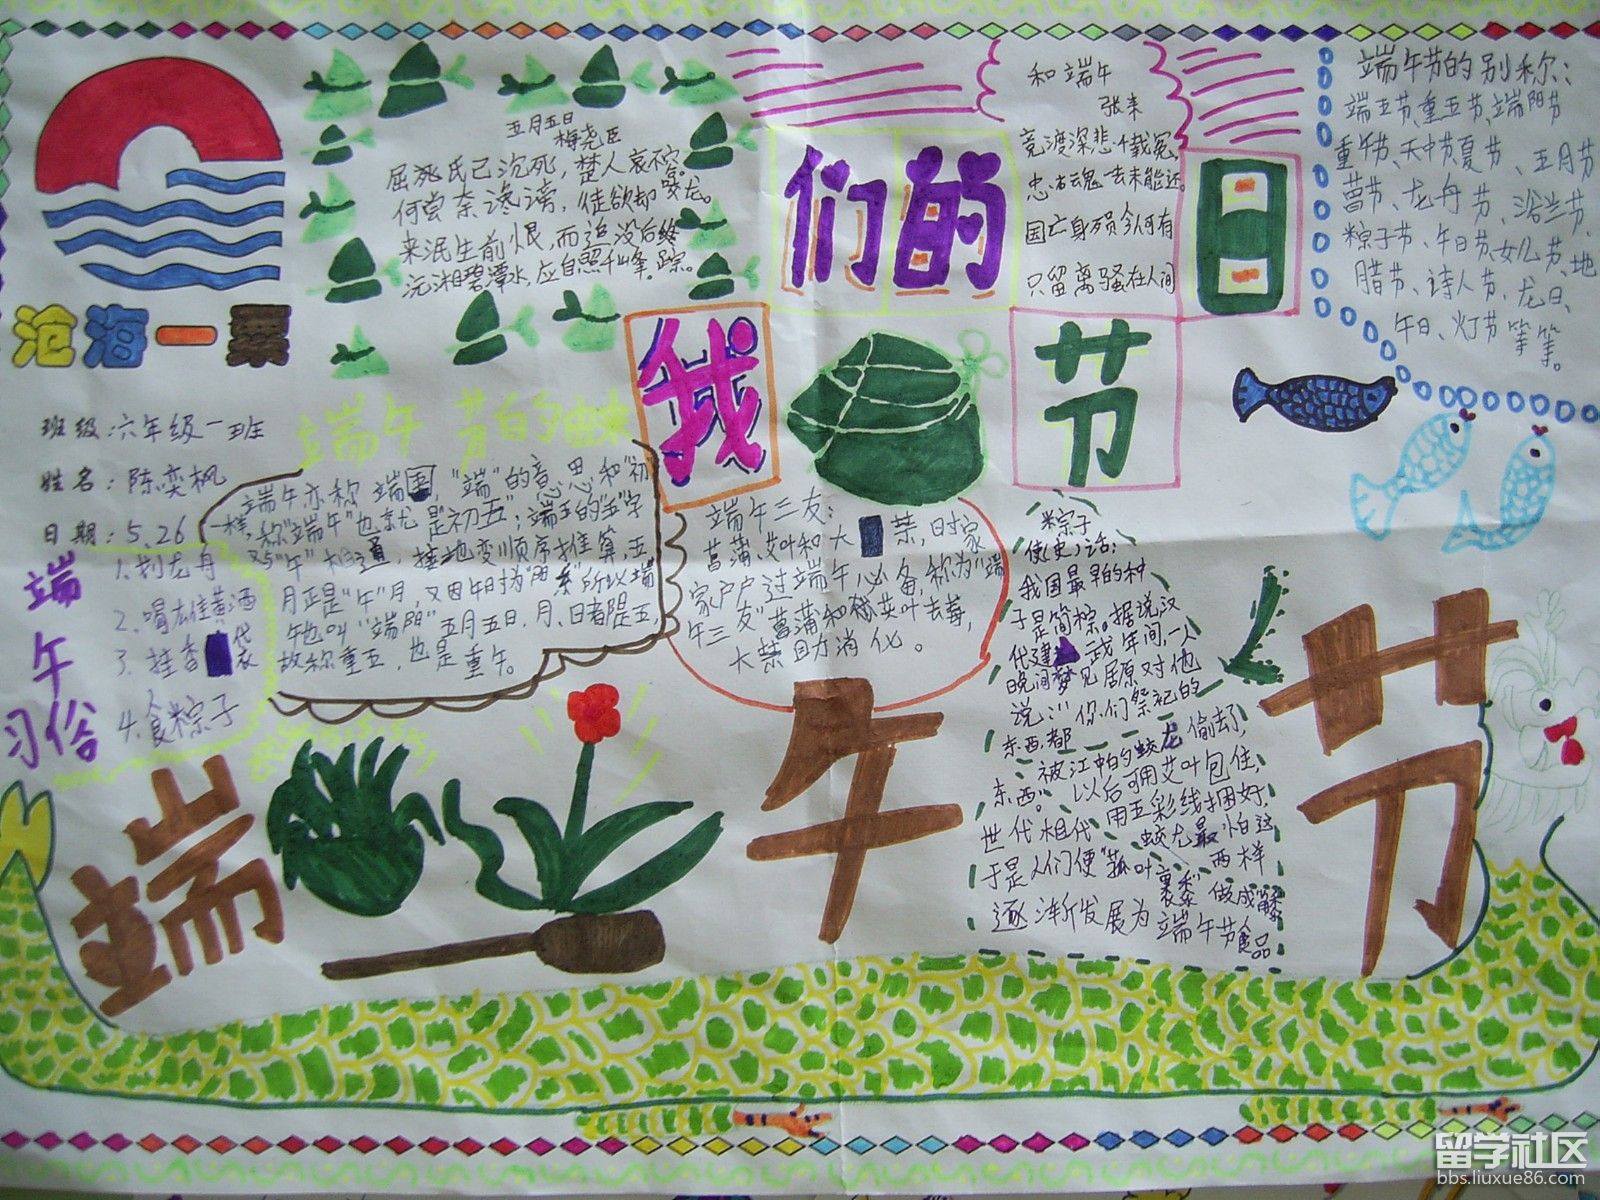 沧海一粟
班级:六年级一班
姓名:陈奕枫
日期:5.26
五月五日
梅尧臣
屈死氏已沉死,楚人哀不容。
何尝奈谗谤,徒欲却蛟龙。
未泯生前恨,而追没后踪。
沅湘碧潭水,应自照千峰。
我们的节日
和端午
张耒
竞渡深悲千载冤,
忠魂一去未能还。
国亡身殒今何有
只留离骚在人间
端午节的别称:
端五节、重五节、端阳节
重午节、天中节、夏节、五月节
菖节、龙舟节、浴兰节、
粽子节、午日节、女儿节、地
腊节、诗人节、龙日、
午日、灯节等等。
端午节的由来
端午亦称端五,"端"的意思和"初"
一样,称"端午"也就是初五;端五的"五"字
又与"午"相通,按地支顺序推算,五
月正是"午"月,又因午时为"阳辰"所以端
午也叫"端阳"五月五日,月、日都是五,
故称重五,也是重午。
端午三友:
菖蒲、艾叶和大蒜,时家
家户户过端午必备,称为"端
午三友"菖蒲和艾叶去毒,
大蒜助消化。
粽子
使(史)话:
我国最早的种
子是筒粽。据说汉
代建武年间,一人
晚间梦见屈原对他
说:"你们祭祀的
东西都
被江中的蛟龙偷去,
东西。以后可用艾叶包住,
用五彩线捆好,
蛟龙最怕这
两样
世代相代
于是人们便"菰叶裹黍"做成
逐渐发展为端午节食品
端午习俗
1.划龙舟
2、喝雄黄酒
3、挂香袋
4、食粽子
端午节
留学社区
bbs.liuxue86.com